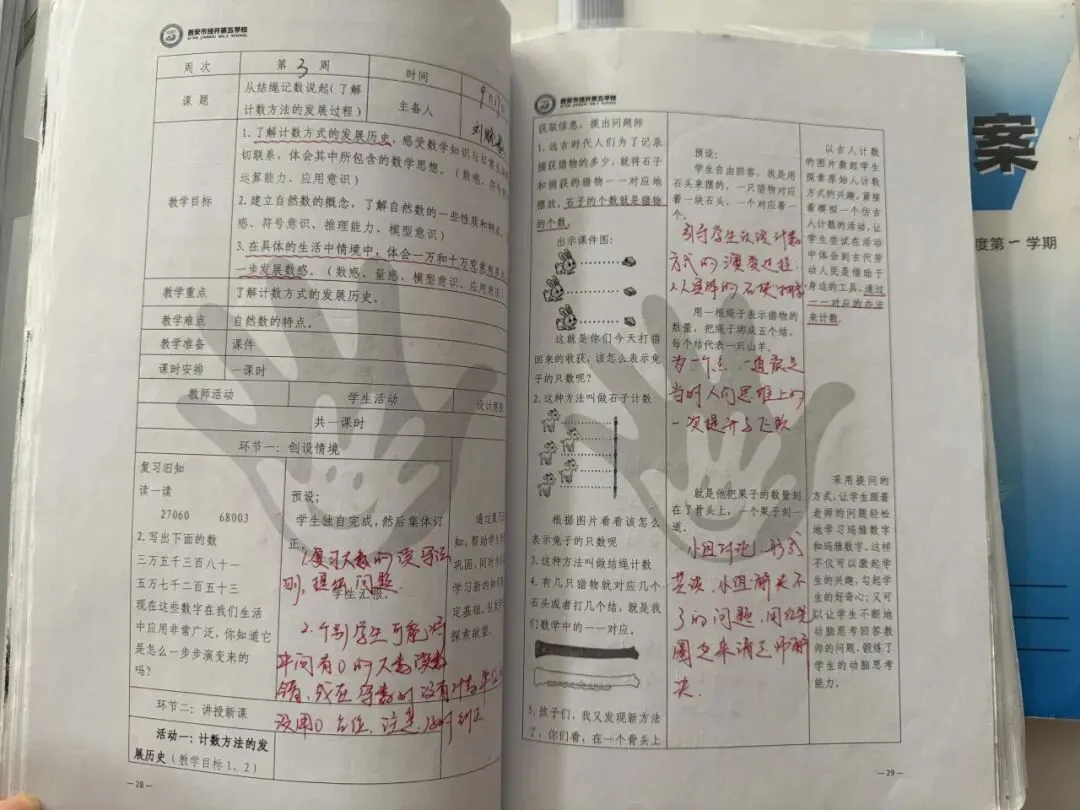 西安市经开第五学校
周次
第 3 周
时间
9月
课题
从结绳记数说起(了解
计数方法的发展过程)
主备人
教学目标
1.了解计数方式的发展历史,感受数学知识与日常生
切联系,体会其中所包含的数学思想。(数感、符号
运算能力、应用意识)
2.建立自然数的概念,了解自然数的一些性质和特点。
感、符号意识、推理能力、模型意识)
3.在具体的生活中情境中,体会一万和十万究竟有多大
一步发展数感。(数感、量感、模型意识、应用意识)
教学重点
了解计数方式的发展历史。
教学难点
自然数的特点。
教学准备
课件
课时安排
一课时
教师活动
学生活动
设计意图
共一课时
环节一:创设情境
复习旧知
读一读
27060 68003
2.写出下面的数
三万五千三百八十一
五万七千二百五十三
现在这些数字在我们生活
中应用非常广泛,你知道它
是怎么一步步演变来的
吗?
预设:
学生独自完成,然后集体订
正。
1.复习大数的读写法
则,提出问题.
学生
2.个别学生可能
中间有0的大数读
错,或在写数时没有计数单位
没用0占位,注意及时纠正
通过复
知,帮助学生
巩固,同时为
学习新的知识
定基础,引发学
探索欲望。
环节二:讲授新课
活动一:计数方法的发
展历史(教学目标1、2)
—28—
西安市经开第五学校
获取信息,提出问题师
1.远古时代人们为了记录
捕获猎物的多少,就将石子
和捕获的猎物一一对应地
摆放。石子的个数就是猎物
的个数。
出示课件图:
这就是你们今天打猎
回来的收获,该怎么表示兔
子的只数呢?
2.这种方法叫做石子计数
根据图片看看该怎么
表示兔子的只数呢
3.这种方法叫做结绳计数
4.有几只猎物就对应几个
石头或者打几个结,就是我
们数学中的一一对应。
5.孩子们,我又发现新方法
了,你们看,在一个骨头上
预设:
学生自由回答,我是用
石头来摆的,一只猎物对应
着一块石头,一个对应着一
个。
引导学生认识计数
方式的演变过程:
从具体的石块"抽象
用一根绳子表示猎物的
数量,把绳子绑成五个结。
每个结代表一只山羊。
为一个点、一道痕是
当时人们思维上的
一次提升与飞跃
就是他把果子的数量刻
在了骨头上,一个果子刻一
道。
小组讨论形式
共读,小组解决不
了的问题,用红笔
圈起来请老师解
决.
以古人计数
的图片激起学生
探索原始人计数
方式的兴趣。紧接
着模拟一个仿古
人计数的活动,让
学生尝试在活动
中体会到古代劳
动人民是借助于
身边的工具,通过
一一对应的办法
来计数。
采用提问的
方式,让学生跟着
老师的问题轻松
地学习玛雅数字
和玛雅数字。这样
不仅可以激起学
生的兴趣,勾起学
生的好奇心;又可
以让学生不断地
动脑思考回答教
师的问题,锻炼了
学生的动脑思考
能力。
—29—
案
度第一学期